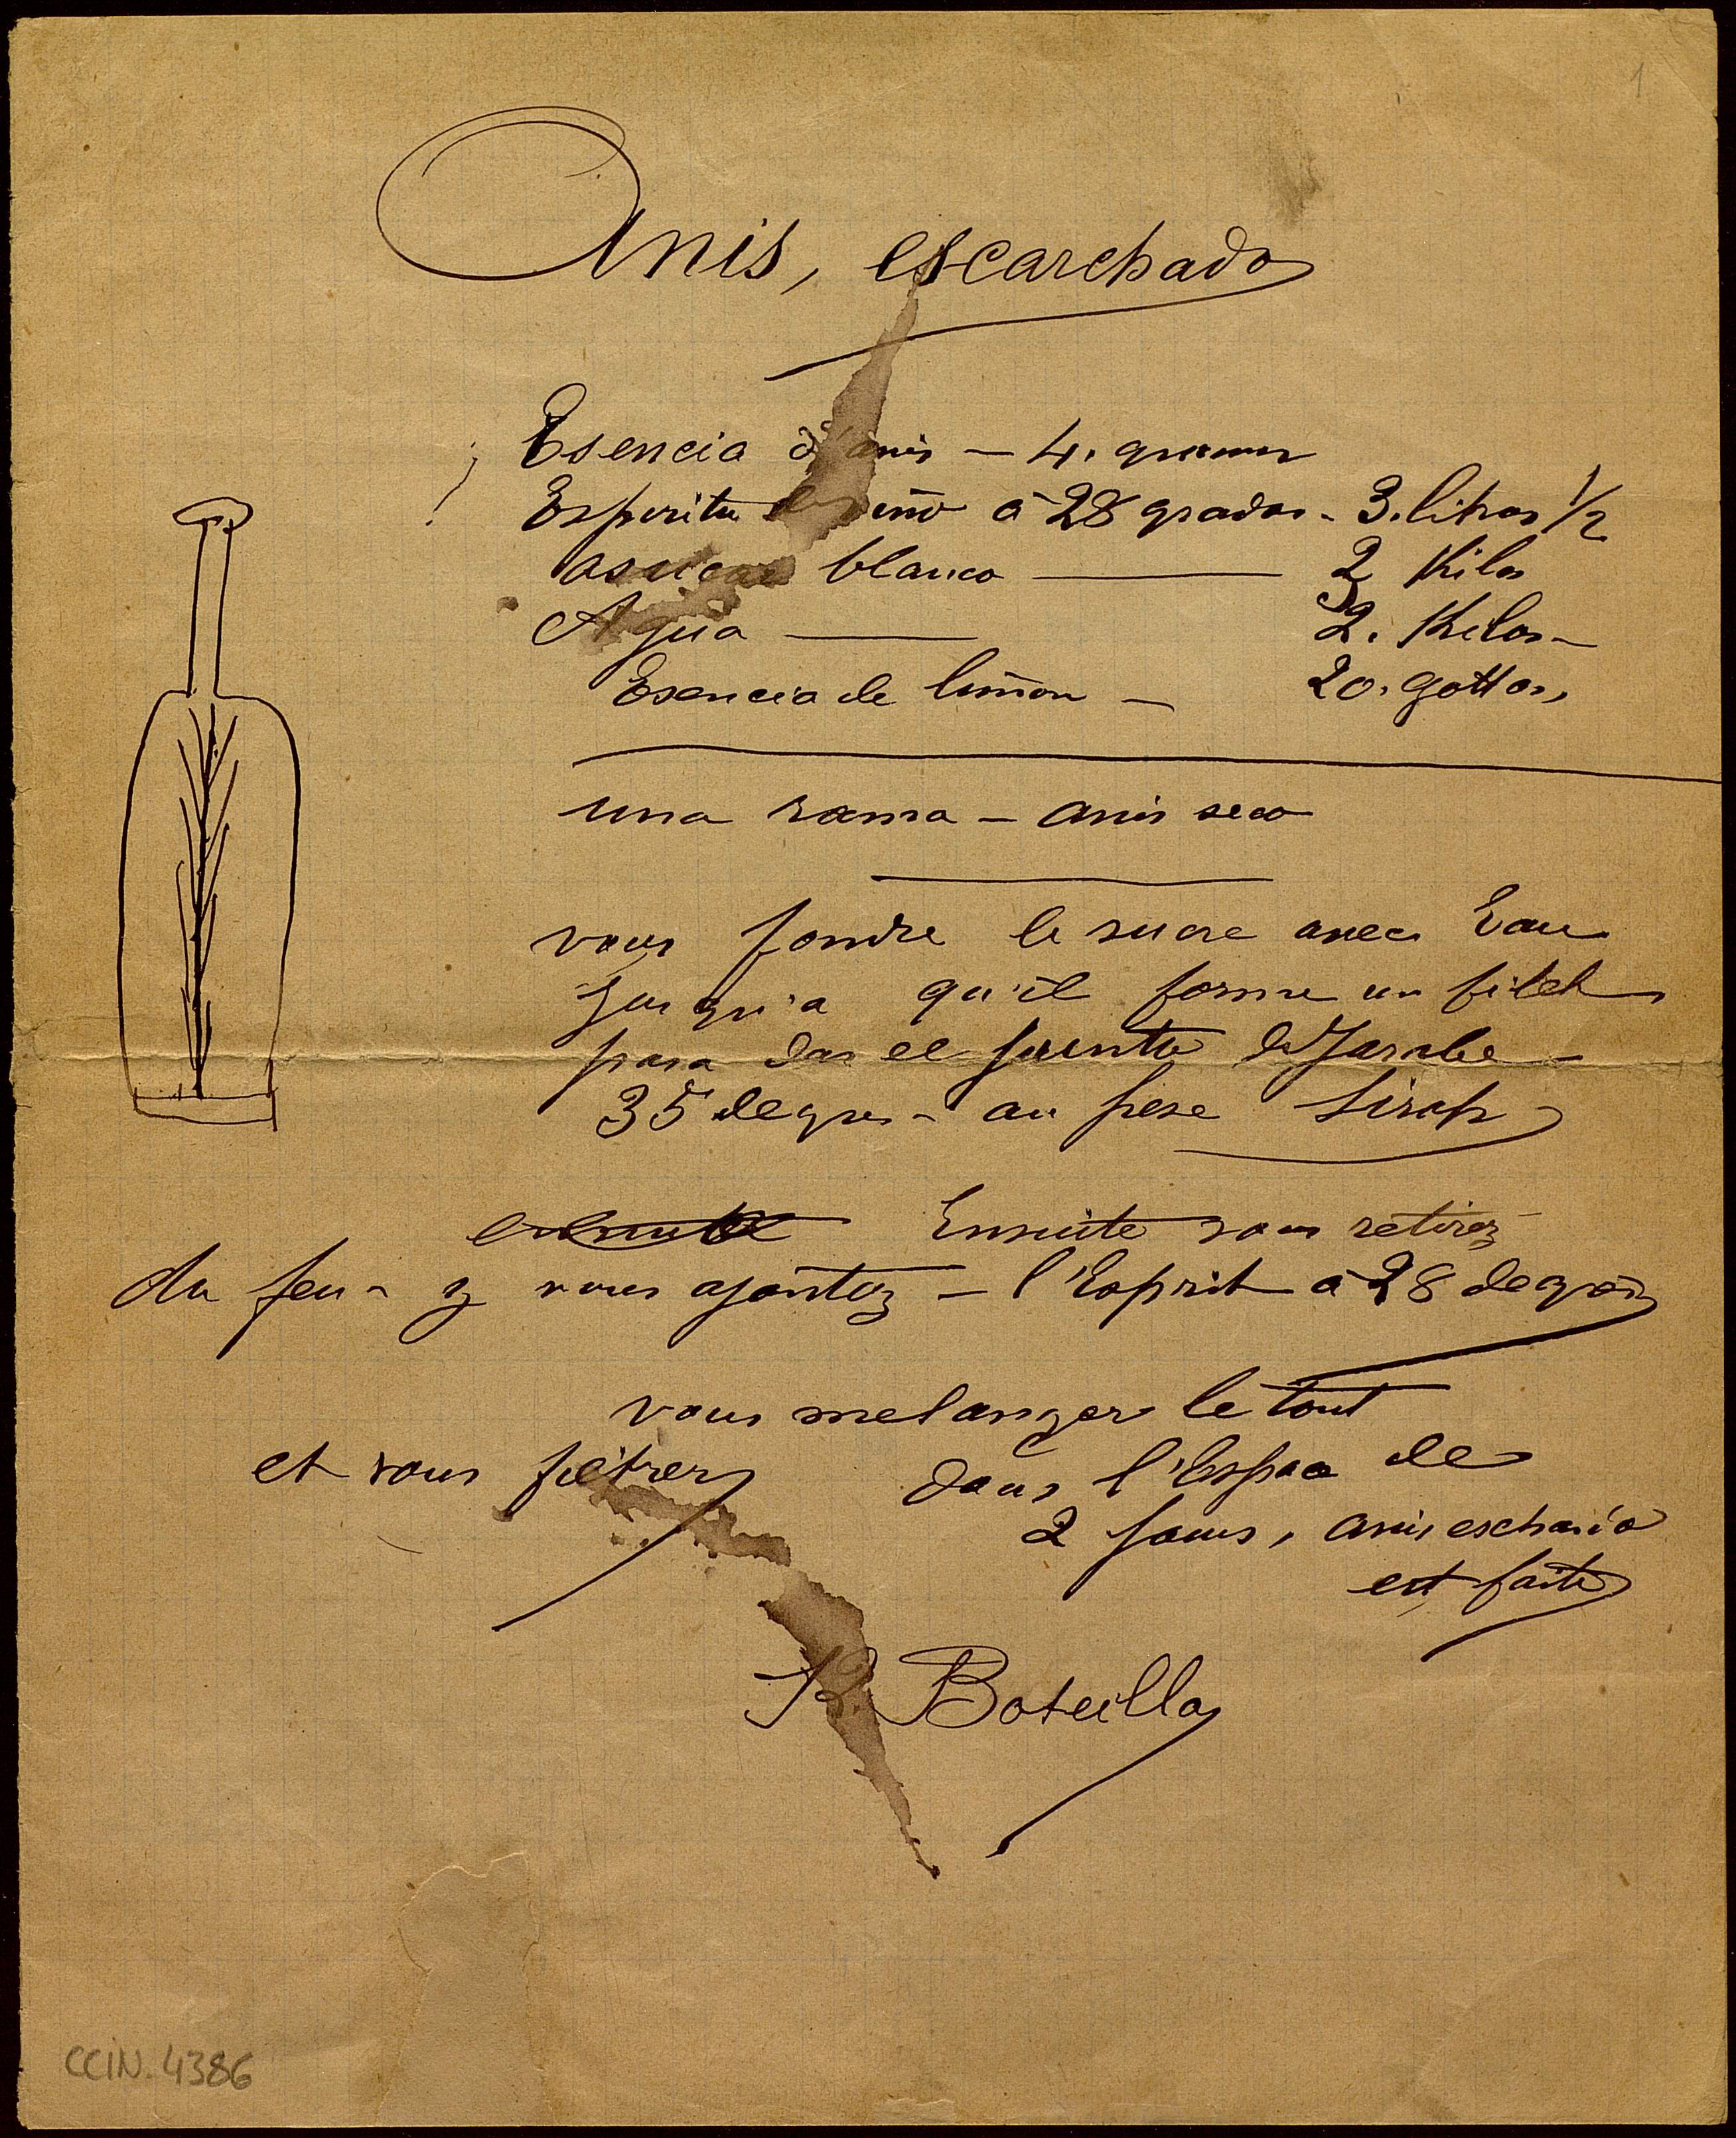 1
Anis, escarchado
Esencia d'anis — 4. grammes
Espiritu de viño a 28 grados - 3. litros 1/2
asucar blanco — 2 Kilos
Agua — 2. Kilos —
Esencia de limon — 20. gottas,
una rama — anis seco
vous fondre le sucre avec Eau
Jusqu'a qu'il forme un filet
para dar el puntto de Jarabe —
35 degres - au pese Sirop
Ensuite vous retirez
du feu - y vous ajoutez — l'Esprit a 28 degres
vous melanger le tout
et vous filtrer dans l'Espace de
2 Jours, anis
est faite
R. Boteilla
CCIN. 4386